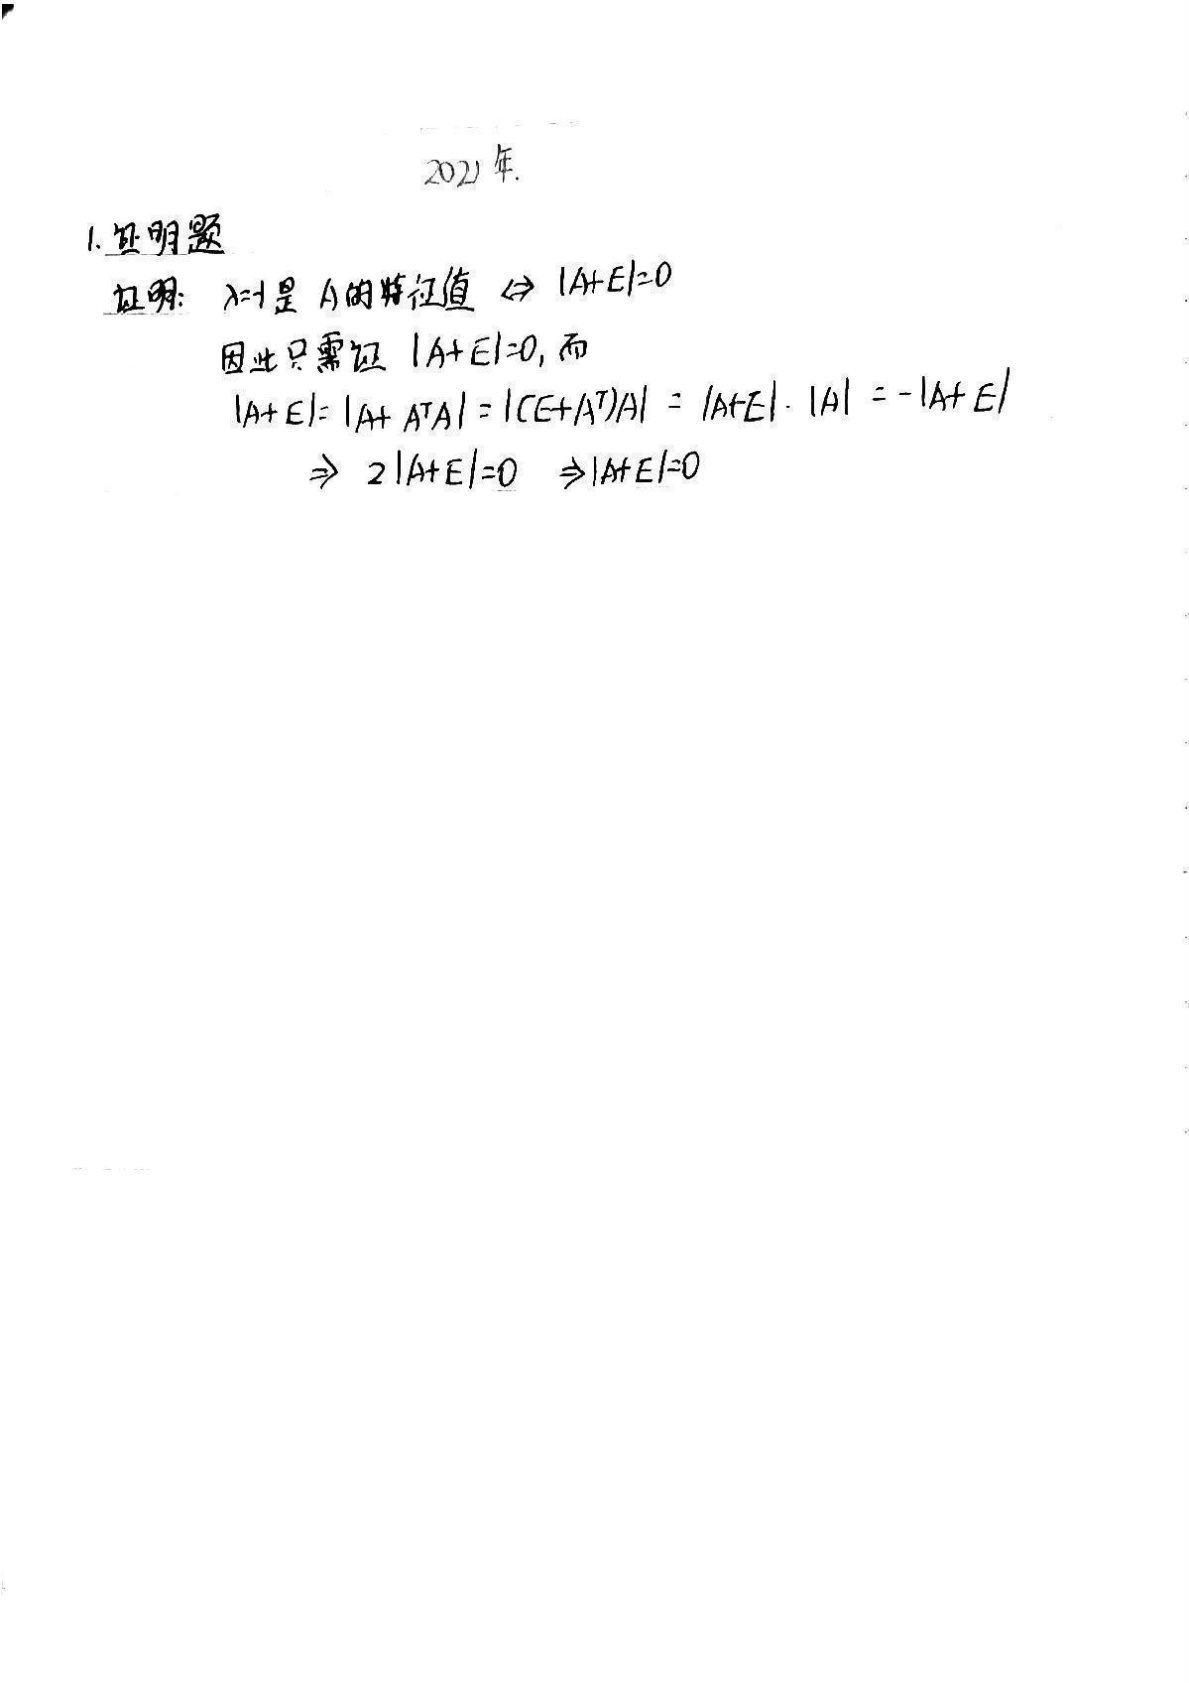 2021年.
1. 证明题
证明: λ=-1是 A的特征值 ⇔ |A+E|=0
因此只需证 |A+E|=0, 而
|A+E|= |A+ AᵀA| = |(E+Aᵀ)A| = |A+E| · |A| = -|A+E|
⇒ 2|A+E|=0 ⇒|A+E|=0